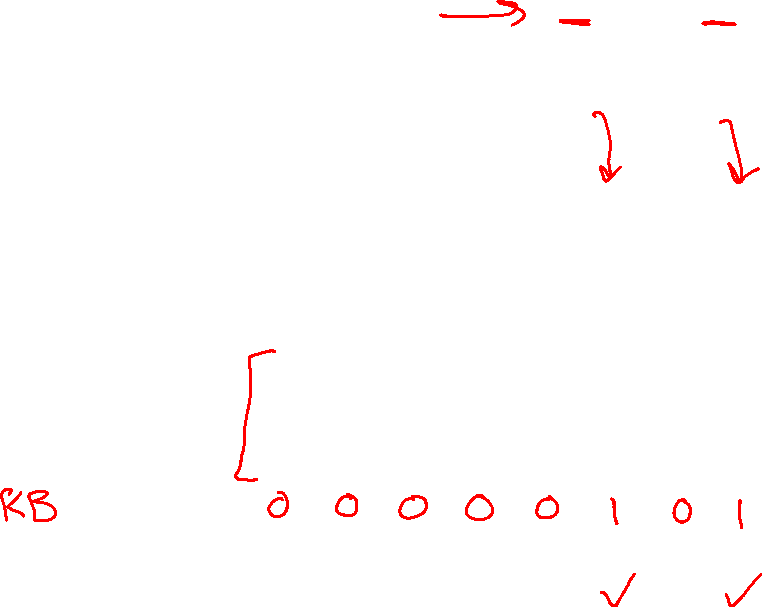 KB 0 0 0 0 0 1 0 1